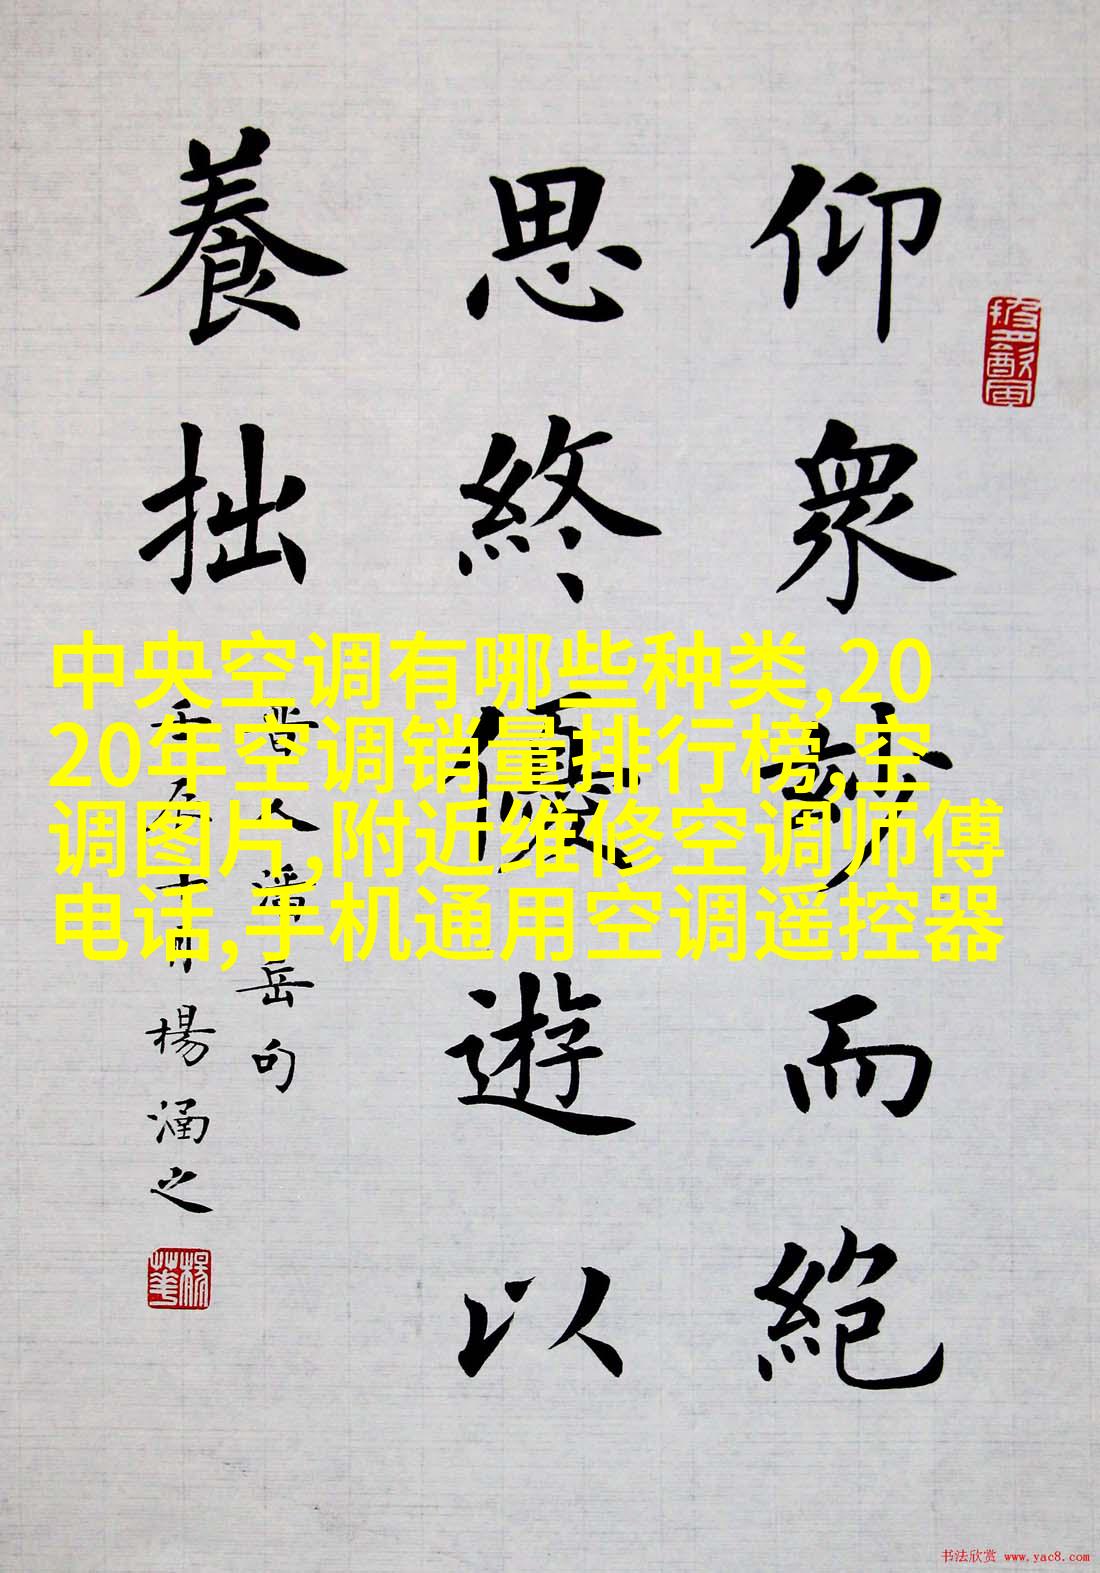 仰眾妙而絕
思終優遊以
養拙
晉人潘岳句
壬辰十月楊涵之
中央空调有哪些种类,20
20年空调销量排行榜,空
调图片,附近维修空调师傅
电话,手机通用空调遥控器
书法欣赏 www.yac8.com